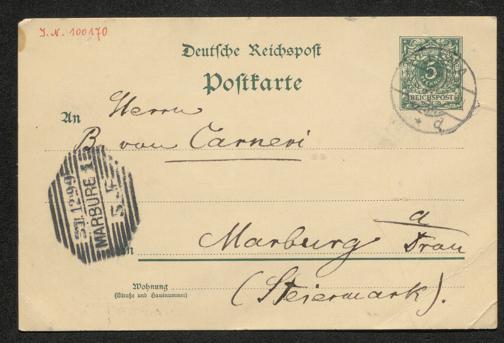 J.N. 100170
Deutsche Reichspost
Postkarte
5
REICHSPOST
An
Herrn
B von Carneri
12.99
MARBURG 1
5-F
in
Marburg a/Drau
Wohnung
(Straße und Hausnummer)
(Steiermark).